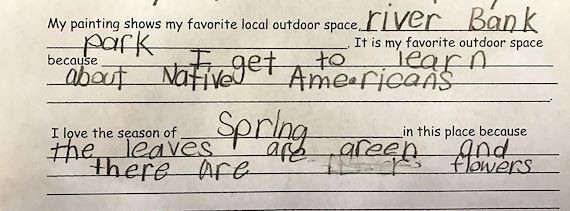 My painting shows my favorite local outdoor space, river Bank
park. It is my favorite outdoor space
because I get to learn
about Native Americans.
I love the season of Spring in this place because
the leaves are green and
there are flowers